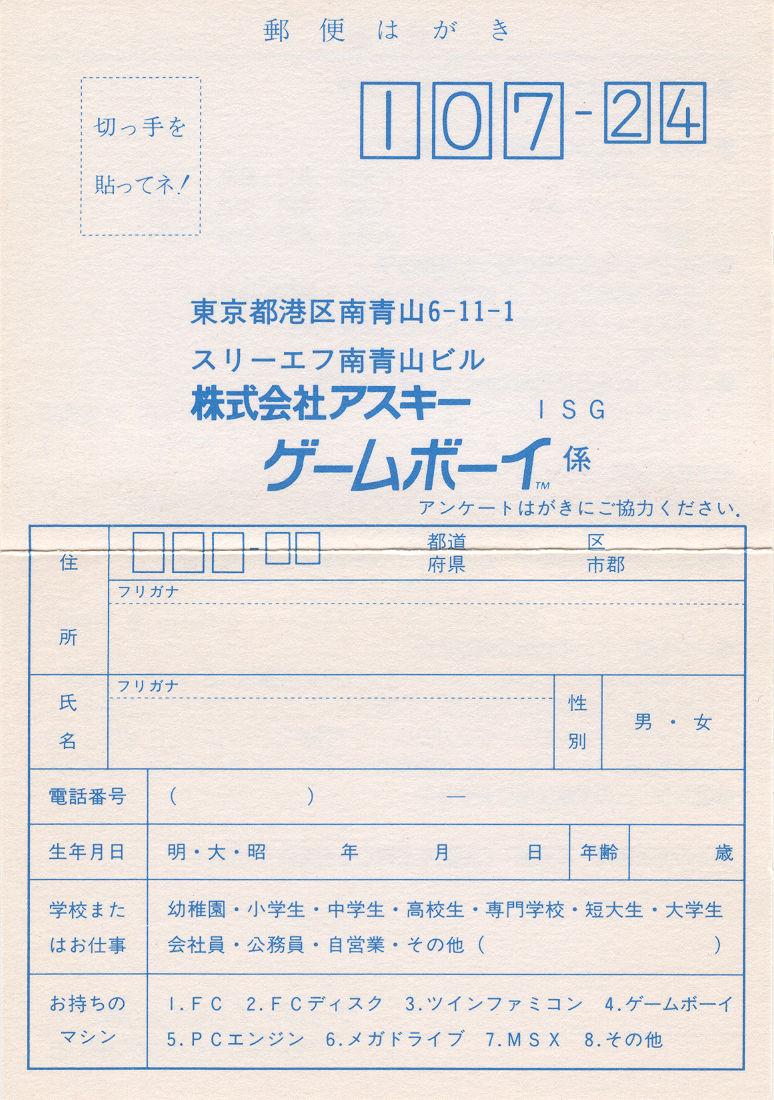 郵便はがき
切っ手を
貼ってネ!
107-24
東京都港区南青山6-11-1
スリーエフ南青山ビル
株式会社アスキー ISG
ゲームボーイ™係
アンケートはがきにご協力ください.
住所 - 都道 区
府県 市郡
フリガナ
氏名 フリガナ 性別 男・女
電話番号 ( ) —
生年月日 明・大・昭 年 月 日 年齢 歳
学校また 幼稚園・小学生・中学生・高校生・専門学校・短大生・大学生
はお仕事 会社員・公務員・自営業・その他( )
お持ちの 1.FC 2.FCディスク 3.ツインファミコン 4.ゲームボーイ
マシン 5.PCエンジン 6.メガドライブ 7.MSX 8.その他